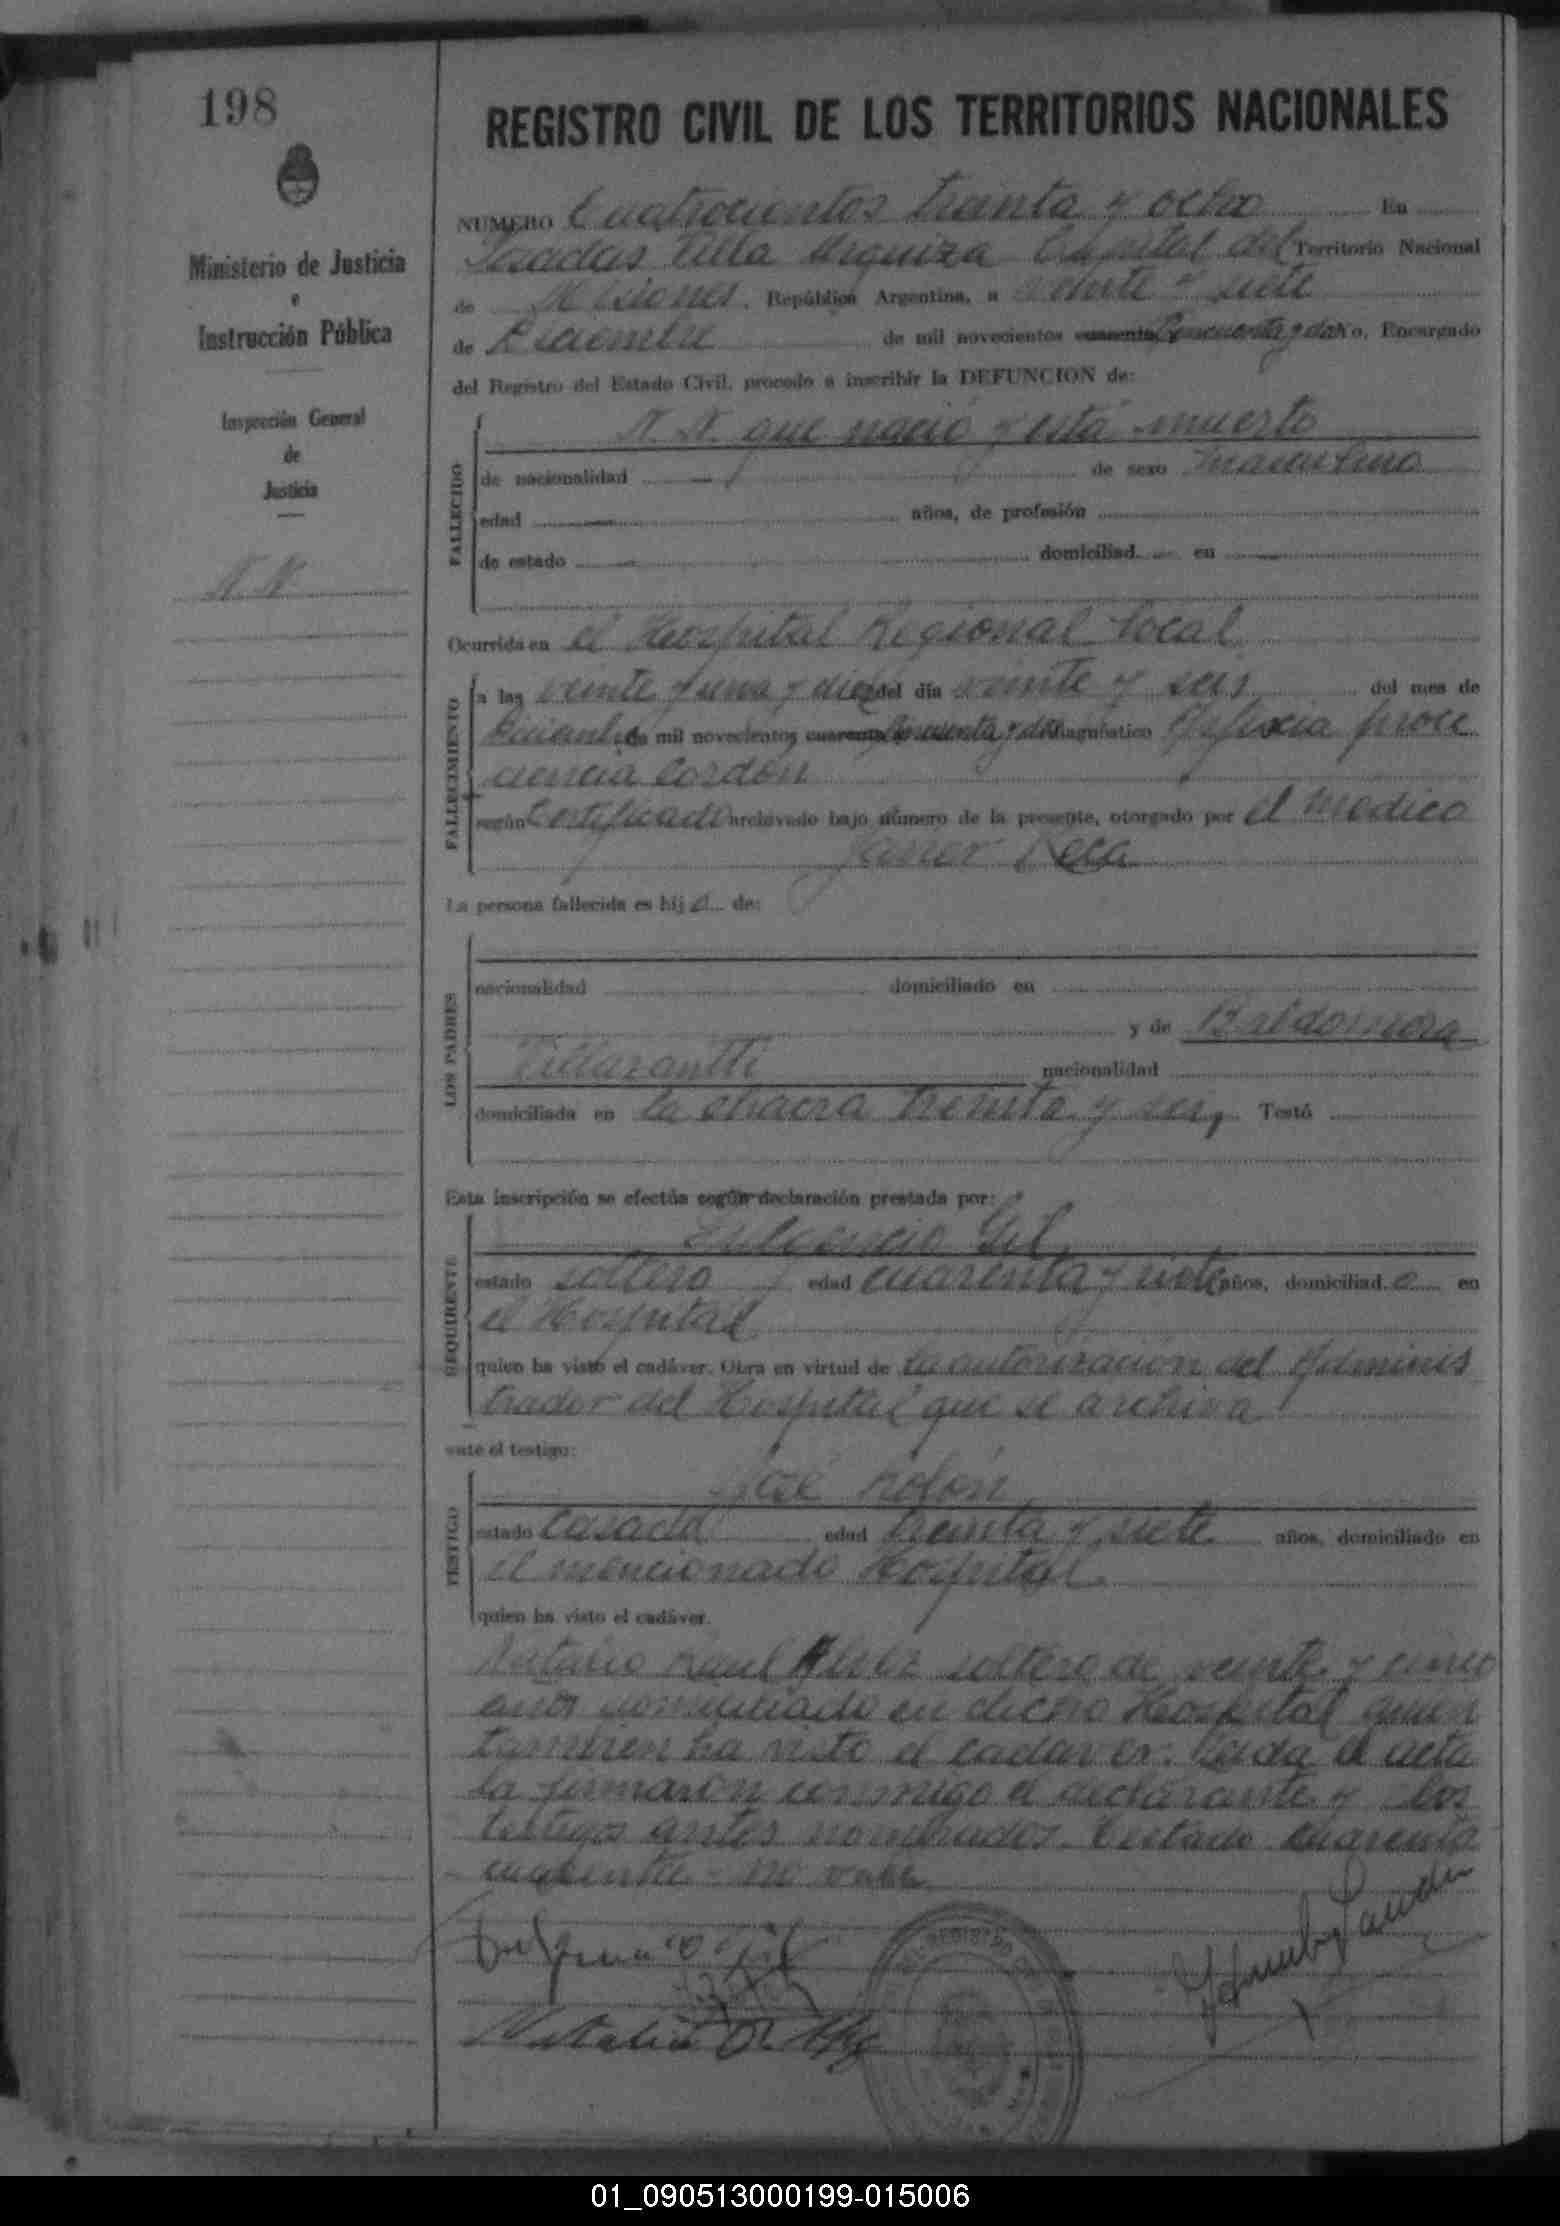 198
REGISTRO CIVIL DE LOS TERRITORIOS NACIONALES
Ministerio de Justicia
e
Instrucción Pública
Inspección General
de
Justicia
N. N.
NUMERO Cuatrocientos treinta y ocho En
Posadas Villa Urquiza Capital del Territorio Nacional
de Misiones, República Argentina, a veinte y siete
de Diciembre de mil novecientos cuarenta Cincuenta y dos Yo, Encargado
del Registro del Estado Civil, procedo a inscribir la DEFUNCION de:
FALLECIDO
N. N. que nació y está muerto
de nacionalidad — de sexo masculino
edad — años, de profesión
de estado — domiciliad — en —
Ocurrida en el Hospital Regional local
FALLECIMIENTO
a las veinte y una y diez del día veinte y seis del mes de
Diciembre de mil novecientos cuarenta Cincuenta y dos diagnóstico Asfixia proci
ciencia Cordón
según Certificado archivado bajo número de la presente, otorgado por el medico
Javier
La persona fallecida es hij o de:
LOS PADRES
nacionalidad domiciliado en
y de Baldomera
nacionalidad
domiciliada en la chacra treinta y seis, Testó
Esta inscripción se efectúa según declaración prestada por:
REQUIRENTE
Fulgencio Gil
estado soltero edad cuarenta y siete años, domiciliad o en
el Hospital
quien ha visto el cadáver. Obra en virtud de la autorización del Adminis
trador del Hospital que se archiva
ante el testigo:
TESTIGO
José Rolón
estado Casado edad treinta y siete años, domiciliado en
el mencionado Hospital
quien ha visto el cadáver.
Natalio Raul soltero de veinte y cinco
años domiciliado en dicho Hospital quien
tambien ha visto el cadaver. Leida el acta
la firmaron conmigo el declarante y los
testigos antes nombrados. Testado cuarenta
cuarenta - no vale
Fulgencio Gil
01_090513000199-015006